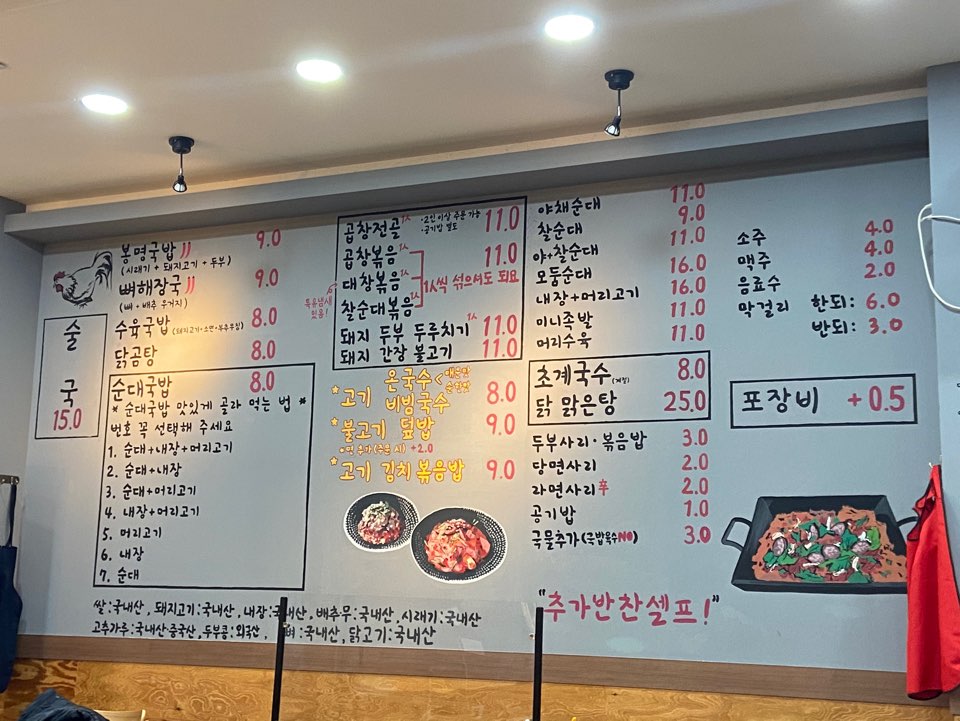 봉명국밥 9.0
(시래기 + 돼지고기 + 두부)
뼈해장국 9.0
(뼈 + 배추 우거지)
수육국밥 (돼지고기+소면+부추무침) 8.0
닭곰탕 8.0
술
국
15.0
순대국밥 8.0
* 순대국밥 맛있게 골라 먹는 법 *
번호 꼭 선택해 주세요
1. 순대+내장+머리고기
2. 순대+내장
3. 순대+머리고기
4. 내장+머리고기
5. 머리고기
6. 내장
7. 순대
곱창전골 1人 ·2인 이상 주문 가능 11.0
·공기밥 별도
곱창볶음 1人 11.0
대창볶음 1人 1人씩 섞으셔도 되요
찰순대볶음 1人
볶음냄새
있음!
돼지 두부 두루치기 1人 11.0
돼지 간장 불고기 11.0
*고기 온국수 < 매운맛
순한맛
비빔국수 8.0
*불고기 덮밥 9.0
+2.0
*고기 김치볶음밥 9.0
야채순대 11.0
찰순대 9.0
야+찰순대 11.0
모둠순대 16.0
내장+머리고기 16.0
미니족발 11.0
머리수육 11.0
초계국수 (계절) 8.0
닭 맑은탕 25.0
두부사리·볶음밥 3.0
당면사리 2.0
라면사리 辛 2.0
공기밥 1.0
국물추가 (국밥육수NO) 3.0
소주 4.0
맥주 4.0
음료수 2.0
막걸리 한되: 6.0
반되: 3.0
포장비 +0.5
"추가반찬셀프!"
쌀:국내산, 돼지고기:국내산, 내장:국내산, 배추무:국내산, 시래기:국내산
고추가루:국내산 중국산, 두부콩:외국산, 뼈:국내산, 닭고기:국내산